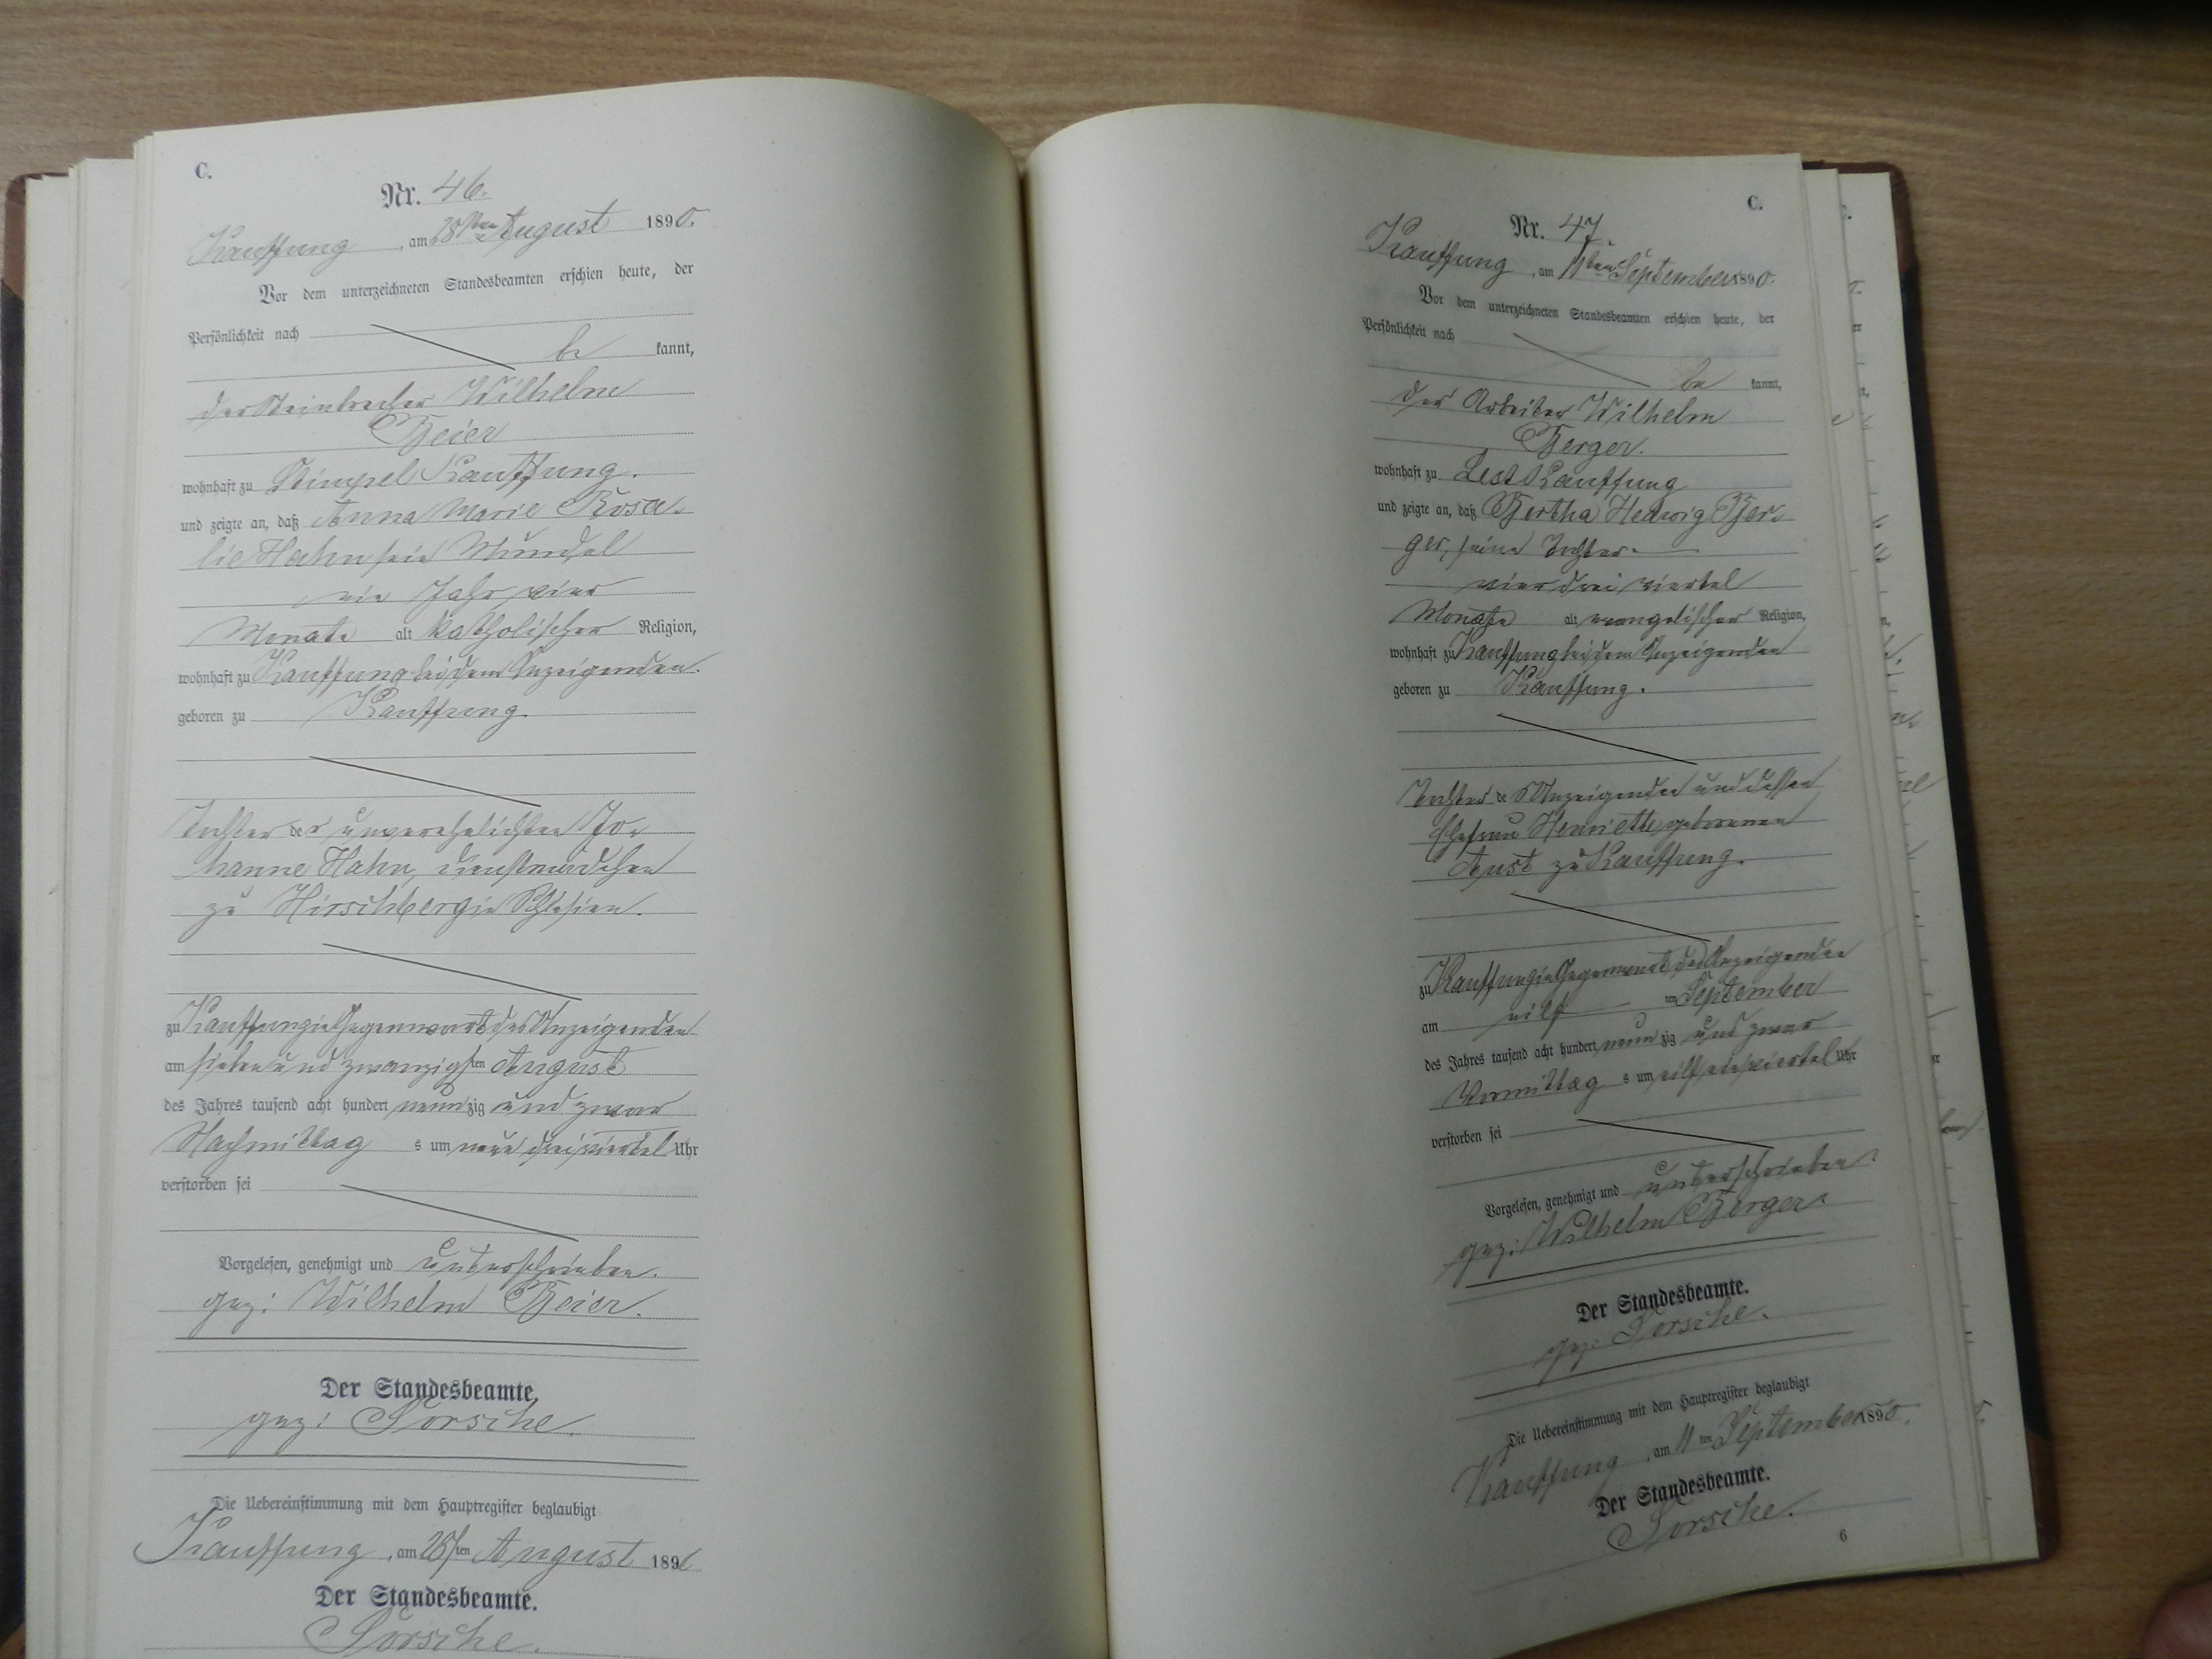 C.
Nr. 46.
Kauffung, am 28ten August 1890.
Vor dem unterzeichneten Standesbeamten erschien heute, der
Persönlichkeit nach
be kannt,
der Steinbrecher Wilhelm
Beier
wohnhaft zu Stimpel Kauffung.
und zeigte an, daß Anna Marie Rosa-
lie Hahn sein Mündel
ein Jahr vier
Monate alt katholischer Religion,
wohnhaft zu Kauffung bei dem Anzeigenden.
geboren zu Kauffung.
Tochter der unverehelichten Jo-
hanne Hahn, Dienstmädchen
zu Hirschberg in Schlesien.
zu Kauffung in Gegenwart des Anzeigenden
am sieben und zwanzigsten August
des Jahres tausend acht hundert neunzig und zwar
Nachmittag s um neun dreiviertel Uhr
verstorben sei
Vorgelesen, genehmigt und unterschrieben.
gez: Wilhelm Beier.
Der Standesbeamte.
gez:
Die Uebereinstimmung mit dem Hauptregister beglaubigt
Kauffung, am 28sten August 189
Der Standesbeamte.
C.
Nr. 47.
Kauffung, am 11ten September 1890.
Vor dem unterzeichneten Standesbeamten erschien heute, der
Persönlichkeit nach
be kannt,
der Arbeiter Wilhelm
Berger.
wohnhaft zu Lest Kauffung
und zeigte an, daß Bertha Hedwig Ber-
ger, seine Tochter.
vier drei viertel
Monate alt evangelischer Religion,
wohnhaft zu Kauffung bei dem Anzeigenden
geboren zu Kauffung.
Tochter des Anzeigenden und dessen
Ehefrau Henriette geborenen
Aust zu Kauffung.
zu Kauffung in Gegenwart des Anzeigenden
am eilf ten September
des Jahres tausend acht hundert neunzig und zwar
Vormittag s um eilf ein viertel Uhr
verstorben sei
Vorgelesen, genehmigt und unterschrieben.
gez: Wilhelm Berger.
Der Standesbeamte.
gez:
Die Uebereinstimmung mit dem Hauptregister beglaubigt
Kauffung, am 11ten September 1890.
Der Standesbeamte.
6